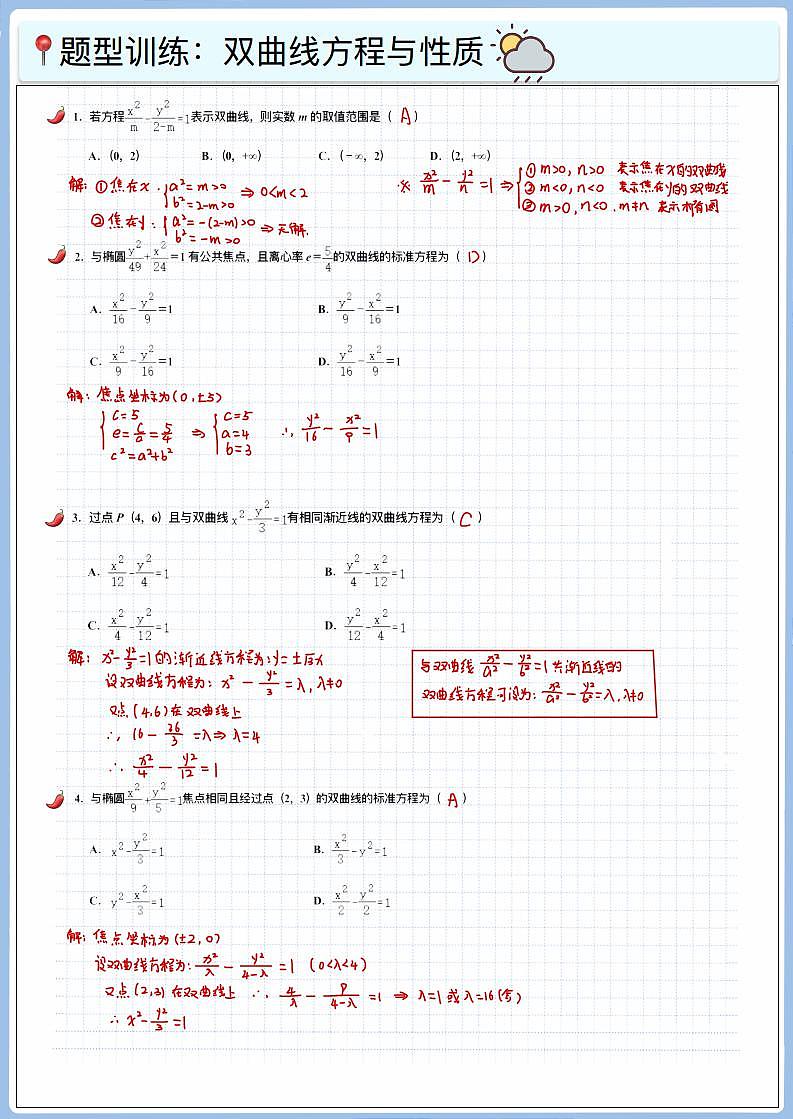 题型训练：双曲线方程与性质
1．若方程x²/m - y²/(2-m) = 1表示双曲线，则实数 m 的取值范围是（ A ）
A．(0，2) B．(0，+∞) C．(－∞，2) D．(2，+∞)
解：①焦在x：{a²=m>0 b²=2-m>0 ⇒ 0<m<2
②焦在y：{a²=-(2-m)>0 b²=-m>0 ⇒ 无解.
※ x²/m - y²/n = 1 ⇒ {① m>0, n>0 表示焦在x的双曲线
② m<0, n<0 表示焦在y的双曲线
③ m>0, n<0. m≠n 表示椭圆
2．与椭圆y²/49 + x²/24 = 1 有公共焦点，且离心率 e = 5/4的双曲线的标准方程为（ D ）
A．x²/16 - y²/9 = 1 B．y²/9 - x²/16 = 1
C．x²/9 - y²/16 = 1 D．y²/16 - x²/9 = 1
解：焦点坐标为(0,±5)
{c=5 e=c/a=5/4 c²=a²+b² ⇒ {c=5 a=4 b=3 ∴ y²/16 - x²/9 = 1
3．过点 P（4，6）且与双曲线 x² - y²/3 = 1有相同渐近线的双曲线方程为（ C ）
A．x²/12 - y²/4 = 1 B．y²/4 - x²/12 = 1
C．x²/4 - y²/12 = 1 D．y²/12 - x²/4 = 1
解：x² - y²/3 = 1的渐近线方程为：y=±√3x
设双曲线方程为：x² - y²/3 = λ, λ≠0
又点(4,6)在双曲线上
∴, 16 - 36/3 = λ ⇒ λ=4
∴ x²/4 - y²/12 = 1
与双曲线 x²/a² - y²/b² = 1 共渐近线的
双曲线方程可设为：x²/a² - y²/b² = λ, λ≠0
4．与椭圆x²/9 + y²/5 = 1焦点相同且经过点（2，3）的双曲线的标准方程为（ A ）
A．x² - y²/3 = 1 B．x²/3 - y² = 1
C．y² - x²/3 = 1 D．x²/2 - y²/2 = 1
解：焦点坐标为(±2,0)
设双曲线方程为：x²/λ - y²/(4-λ) = 1 (0<λ<4)
又点(2,3)在双曲线上 ∴, 4/λ - 9/(4-λ) = 1 ⇒ λ=1 或 λ=16(舍)
∴ x² - y²/3 = 1